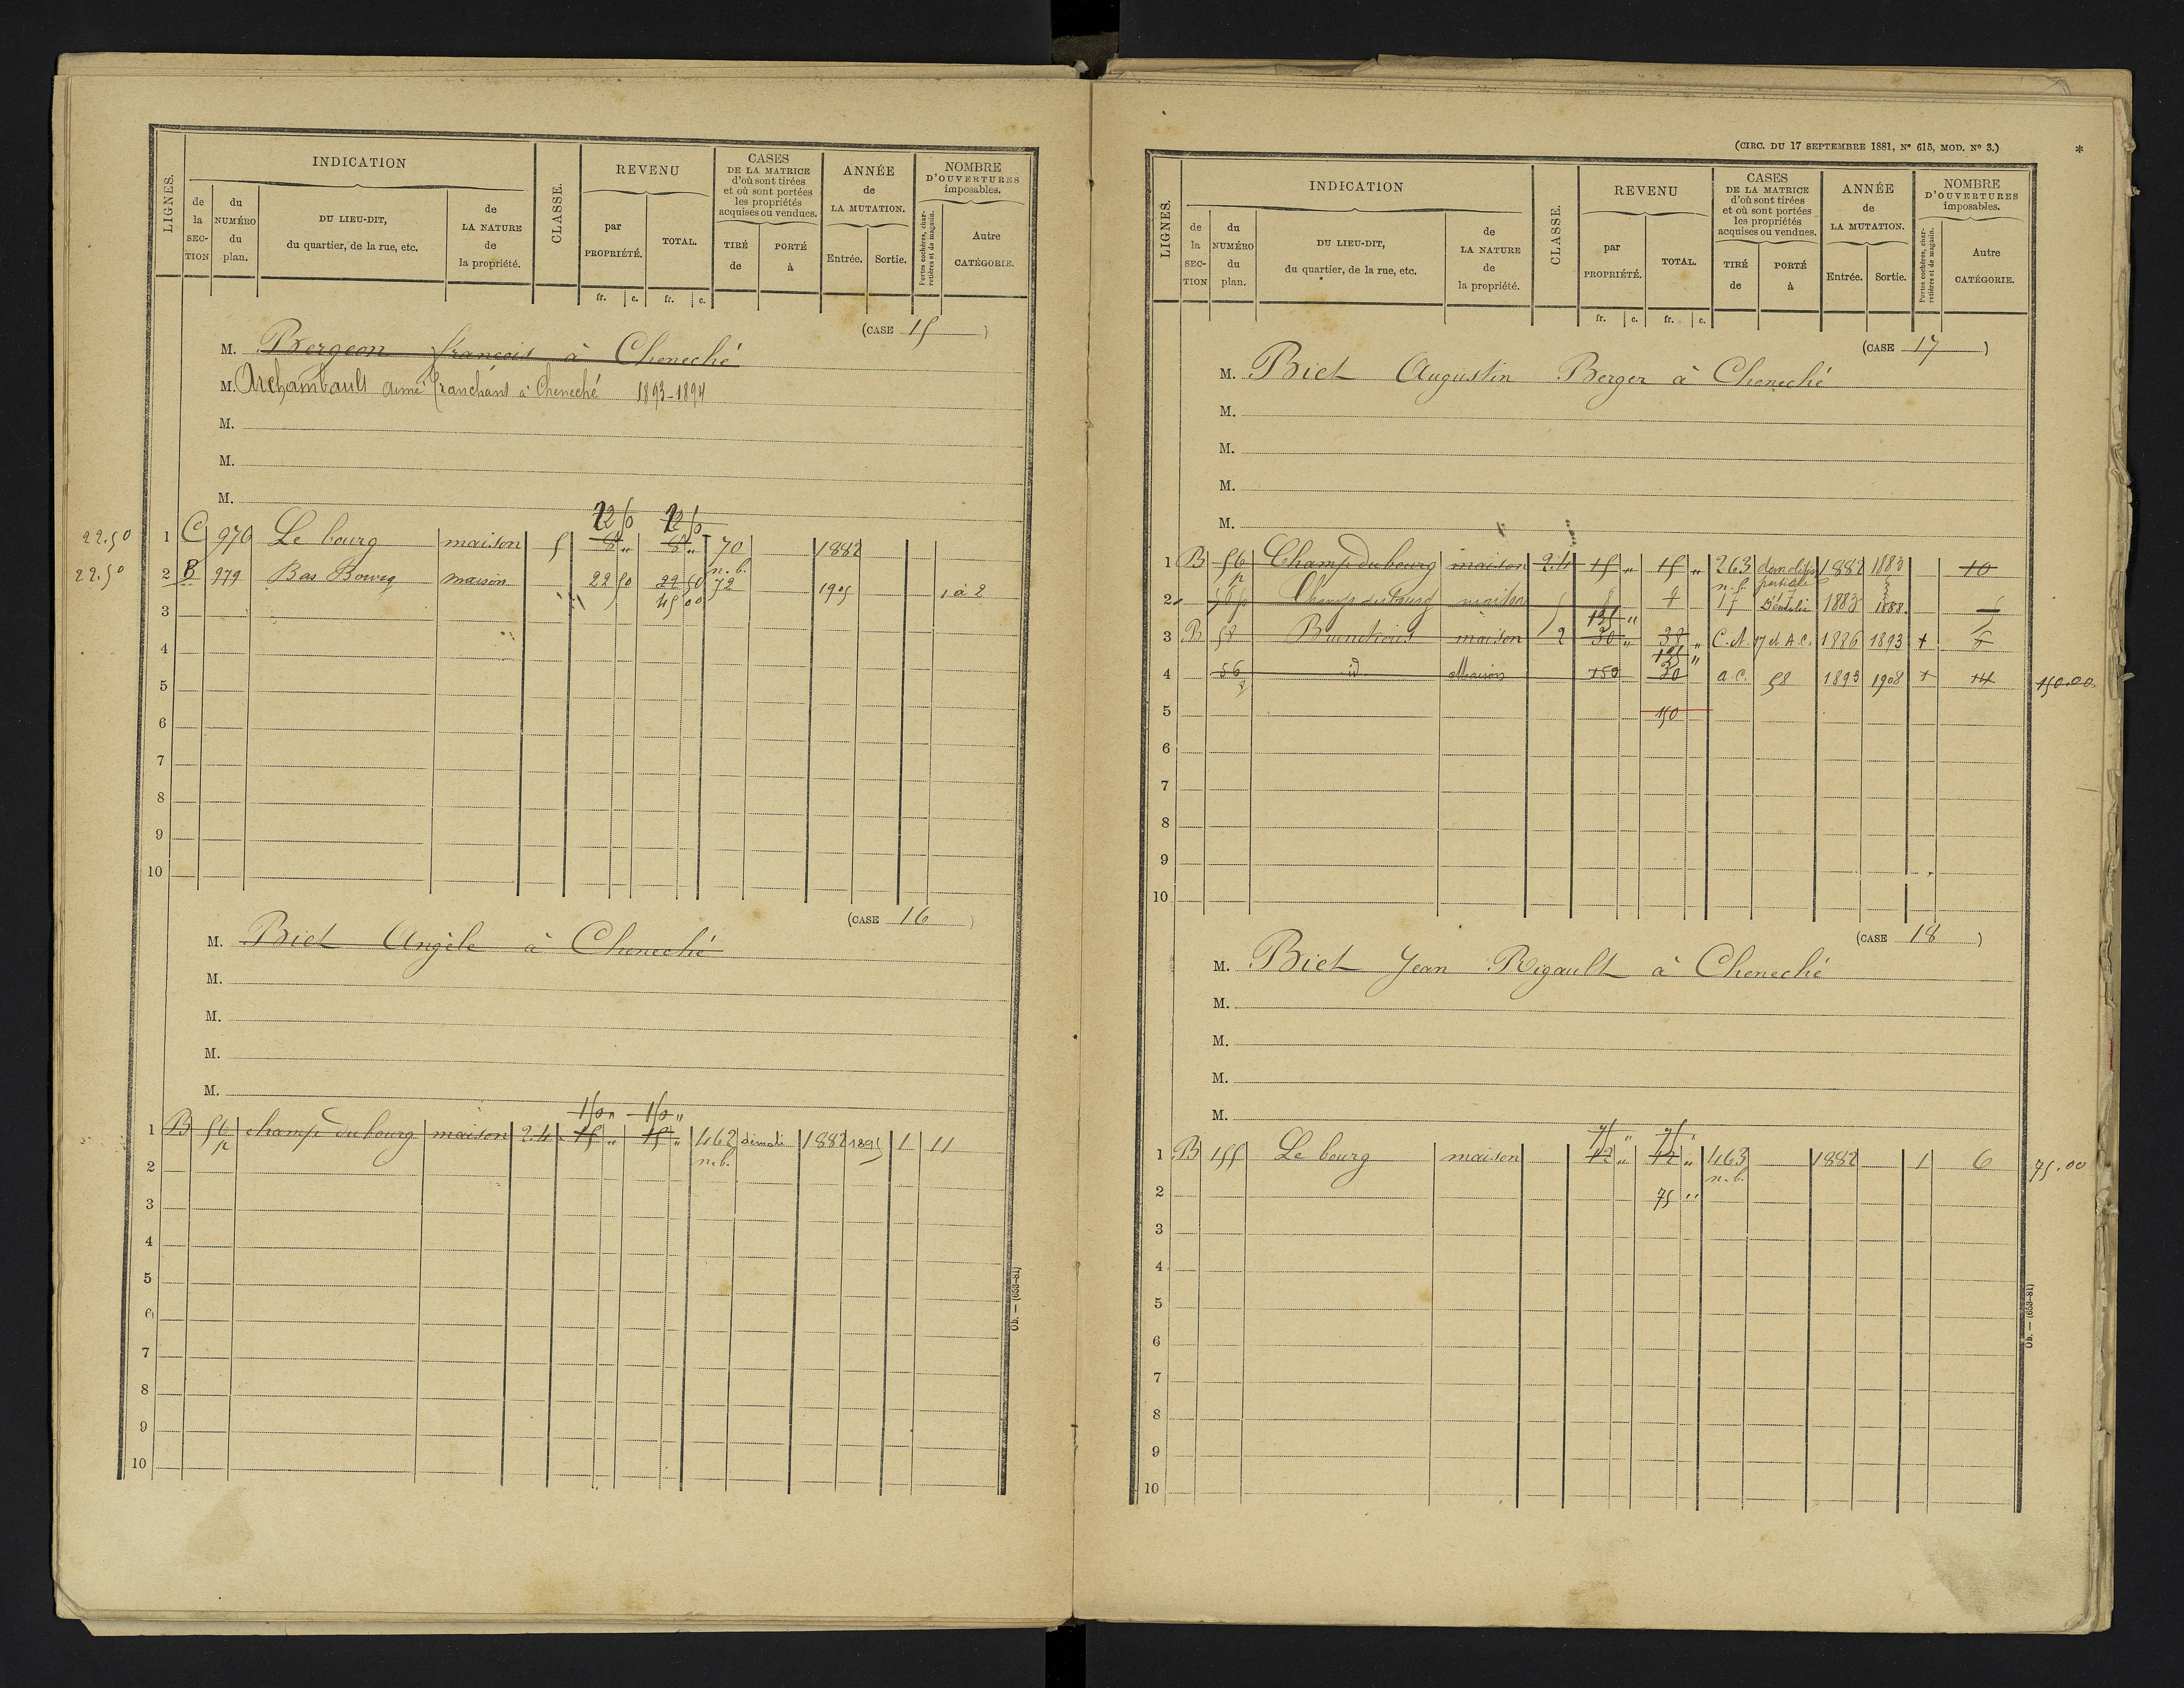 LIGNES.
INDICATION
de la SECTION
du NUMÉRO du plan.
DU LIEU-DIT, du quartier, de la rue, etc.
de LA NATURE de la propriété.
CLASSE.
REVENU
par PROPRIÉTÉ.
TOTAL.
fr. c. fr. c.
CASES DE LA MATRICE d'où sont tirées et où sont portées les propriétés acquises ou vendues.
TIRÉ de
PORTÉ à
ANNÉE de LA MUTATION.
Entrée. Sortie.
NOMBRE D'OUVERTURES imposables.
Portes cochères, charretières et de magasin.
Autre CATÉGORIE.
(CASE 15)
M. Bergeon françois à Cheneché
M. Archambault aimé franchant à Cheneché 1893-1894
M.
M.
M.
22 50 22 50
22.50 1 C 970 Le bourg maison 5 8 " 8 " 70 1882
n.b.
22.50 2 B 979 Bas Bourg maison 22 50 22 50 72 1905 1 à 2
3 45 00
4
5
6
7
8
9
10
(CASE 16)
M. Biet Angèle à Cheneché
M.
M.
M.
M.
150 " 150 "
1 B 56 p champ du bourg maison 2.4 15 " 15 " 462 démoli 1882 1895 1 11
2 n.b.
3
4
5
6
7
8
9
10
Ob. — (653-81)
(CIRC. DU 17 SEPTEMBRE 1881, N° 615, MOD. N° 3.) *
LIGNES.
INDICATION
de la SECTION
du NUMÉRO du plan.
DU LIEU-DIT, du quartier, de la rue, etc.
de LA NATURE de la propriété.
CLASSE.
REVENU
par PROPRIÉTÉ.
TOTAL.
fr. c. fr. c.
CASES DE LA MATRICE d'où sont tirées et où sont portées les propriétés acquises ou vendues.
TIRÉ de
PORTÉ à
ANNÉE de LA MUTATION.
Entrée. Sortie.
NOMBRE D'OUVERTURES imposables.
Portes cochères, charretières et de magasin.
Autre CATÉGORIE.
(CASE 17)
M. Biet Augustin Berger à Cheneché
M.
M.
M.
M.
1 B 56 p Champ du bourg maison 2.4 15 " 15 " 263 démolition partielle 1882 1883 10
2 56 p Champ du bourg maison 5 8 8 17 Démoli 1883 1888
135 "
3 B 58 maison 2 30 " 38 " C.N. 17 et A.C. 1886 1893 1
135 "
4 56 p id Maison 150 30 a.c. 58 1893 1908 1 14 150.00
5 150
6
7
8
9
10
(CASE 18)
M. Biet Jean Rigault à Cheneché
M.
M.
M.
M.
75 " 75 "
1 B 155 Le bourg maison 42 " 42 " 463 1882 1 6 75.00
n.b.
2 75 "
3
4
5
6
7
8
9
10
Ob. — (653-81)